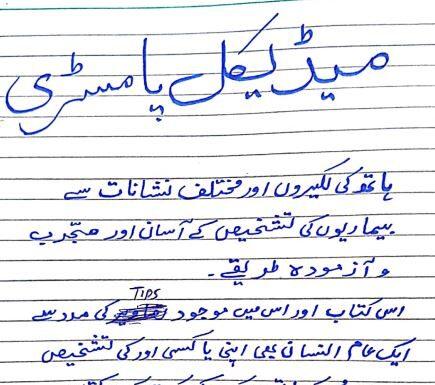 میڈیکل پامسٹری
ہاتھ کی لکیروں اور مختلف نشانات سے
بیماریوں کی تشخیص کے آسان اور مجّرب
و آزمودہ طریقے۔
TIPS
اس کتاب اور اس میں موجود کی مدد سے
ایک عام انسان بھی اپنی یا کسی اور کی تشخیص